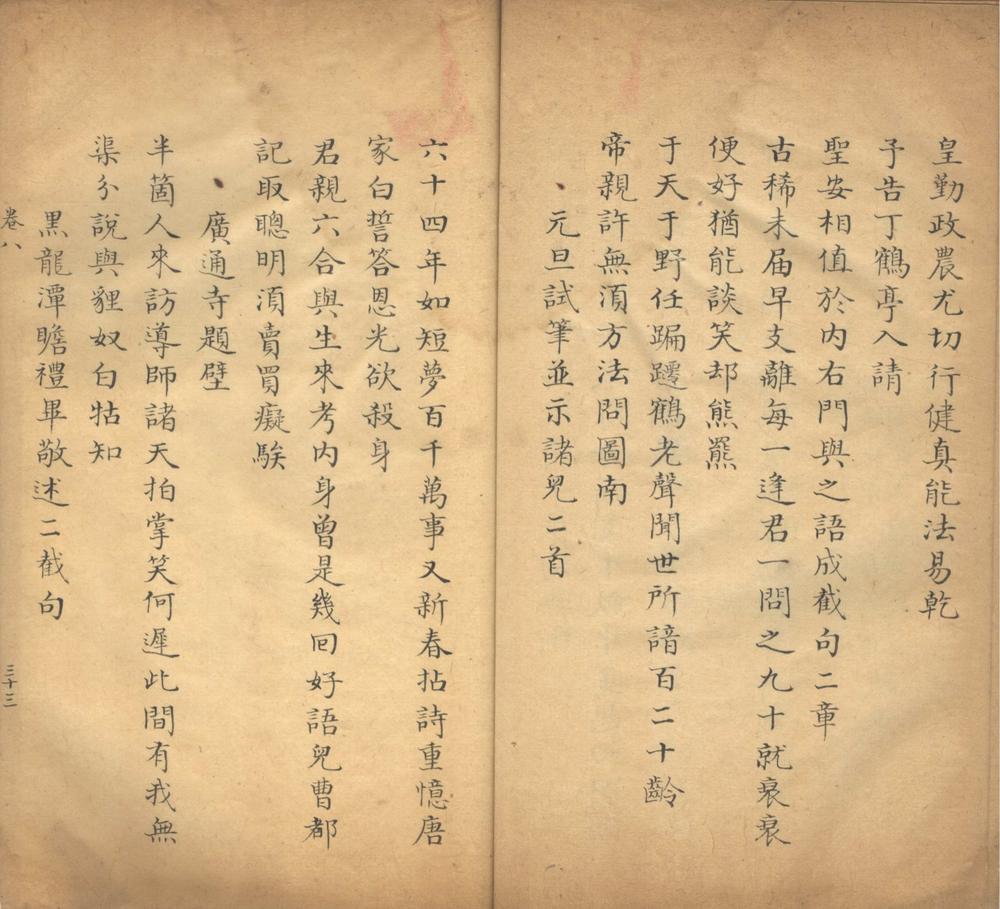 皇勤政農尤切行健真能法易乾
予告丁鶴亭入請
聖安相值於内右門與之語成截句二章
古稀未届早支離每一逢君一問之九十就衰衰
便好猶能談笑却熊羆
于天于野任蹁躚鶴老聲聞世所諳百二十齡
帝親許無湏方法問圖南
元旦試筆並示諸兒二首
六十四年如短夢百千萬事又新春拈詩重憶唐
家白誓答恩光欲殺身
君親六合與生來考内身曾是幾回好語兒曹都
記取聰明湏賣買癡騃
廣通寺題壁
半箇人來訪導師諸天拍掌笑何遲此間有我無
渠分說與貍奴白牯知
黑龍潭瞻禮畢敬述二截句
卷八
三十三